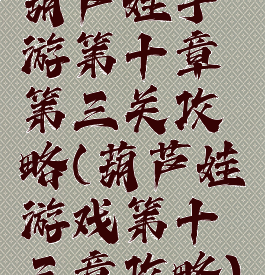 葫芦娃手
游第十章
第三关攻
略(葫芦娃
游戏第十
三章攻略)